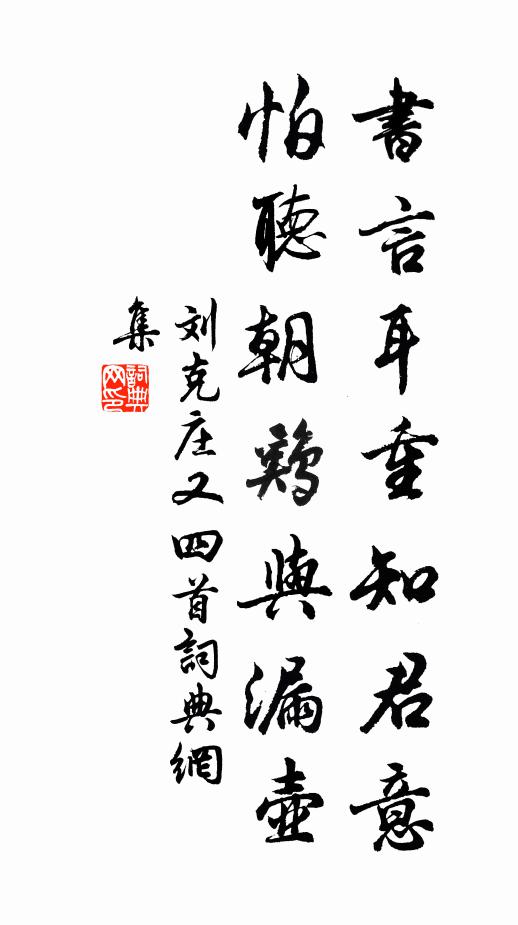 書言耳重知君意
怕聽朝鷄與漏壺
刘克庄又四首詞典網
集
詞典
网印